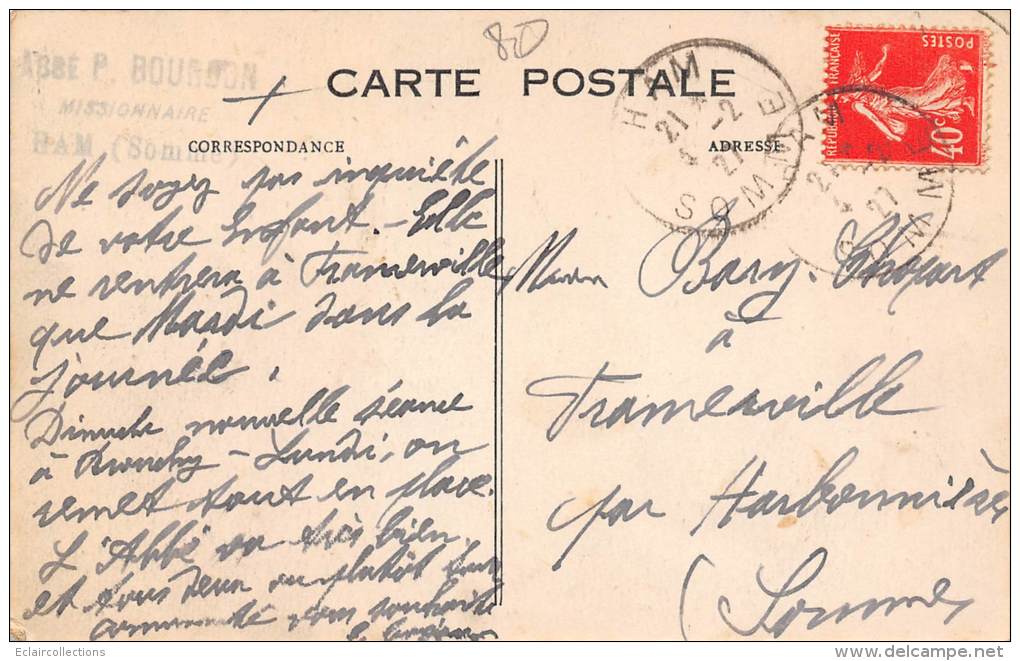 80
ABBÉ P. BOURGON
MISSIONNAIRE
HAM (Somme)
CARTE POSTALE
CORRESPONDANCE
ADRESSE
HAM
21
5-2
27
SOMME
HAM
21
5-2
27
SOMME
RÉPUBLIQUE FRANÇAISE
POSTES
40c
Ne soyez pas inquiète
de votre Enfant. - Elle
ne rentrera à Framerville
que Mardi dans la
journée.
Dimanche nouvelle séance
à Brouchy - Lundi, on
remet tout en place.
L'Abbé va très bien.
et tous deux ou plutôt toute
communauté vous souhaite
le
Mme Bary-Chopart
à
Framerville
par Harbonnières
(Somme)
Eclaircollections
delcampe.net